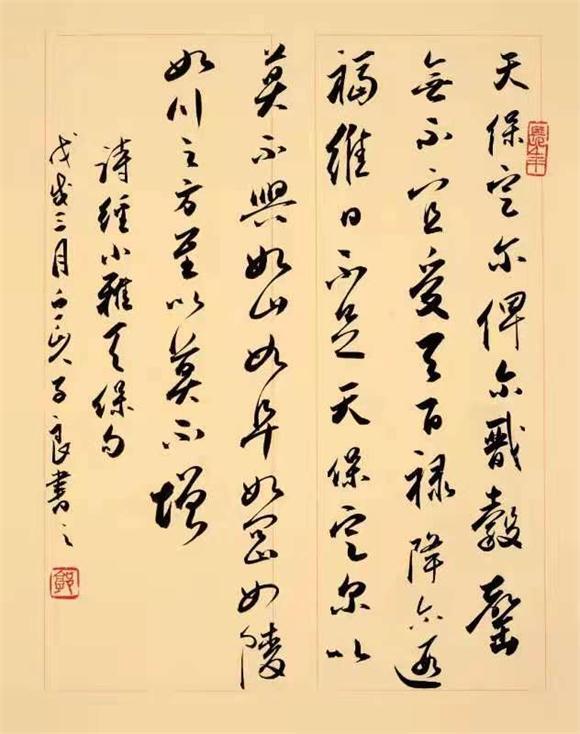 天保定尔俾尔戩穀罄
無不宜受天百禄降尔遐
福維日不足天保定尔以
莫不興如山如阜如岡如陵
如川之方至以莫不增
詩經小雅天保句
戊戌三月子良書之
郭